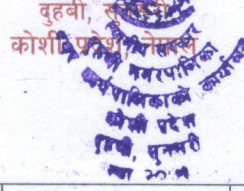 दुहबी, सुनसरी
कोशी प्रदेश, नेपाल
नगरपालिका
कार्यपालिकाको कार्यालय
कोशी प्रदेश
दुहबी, सुनसरी